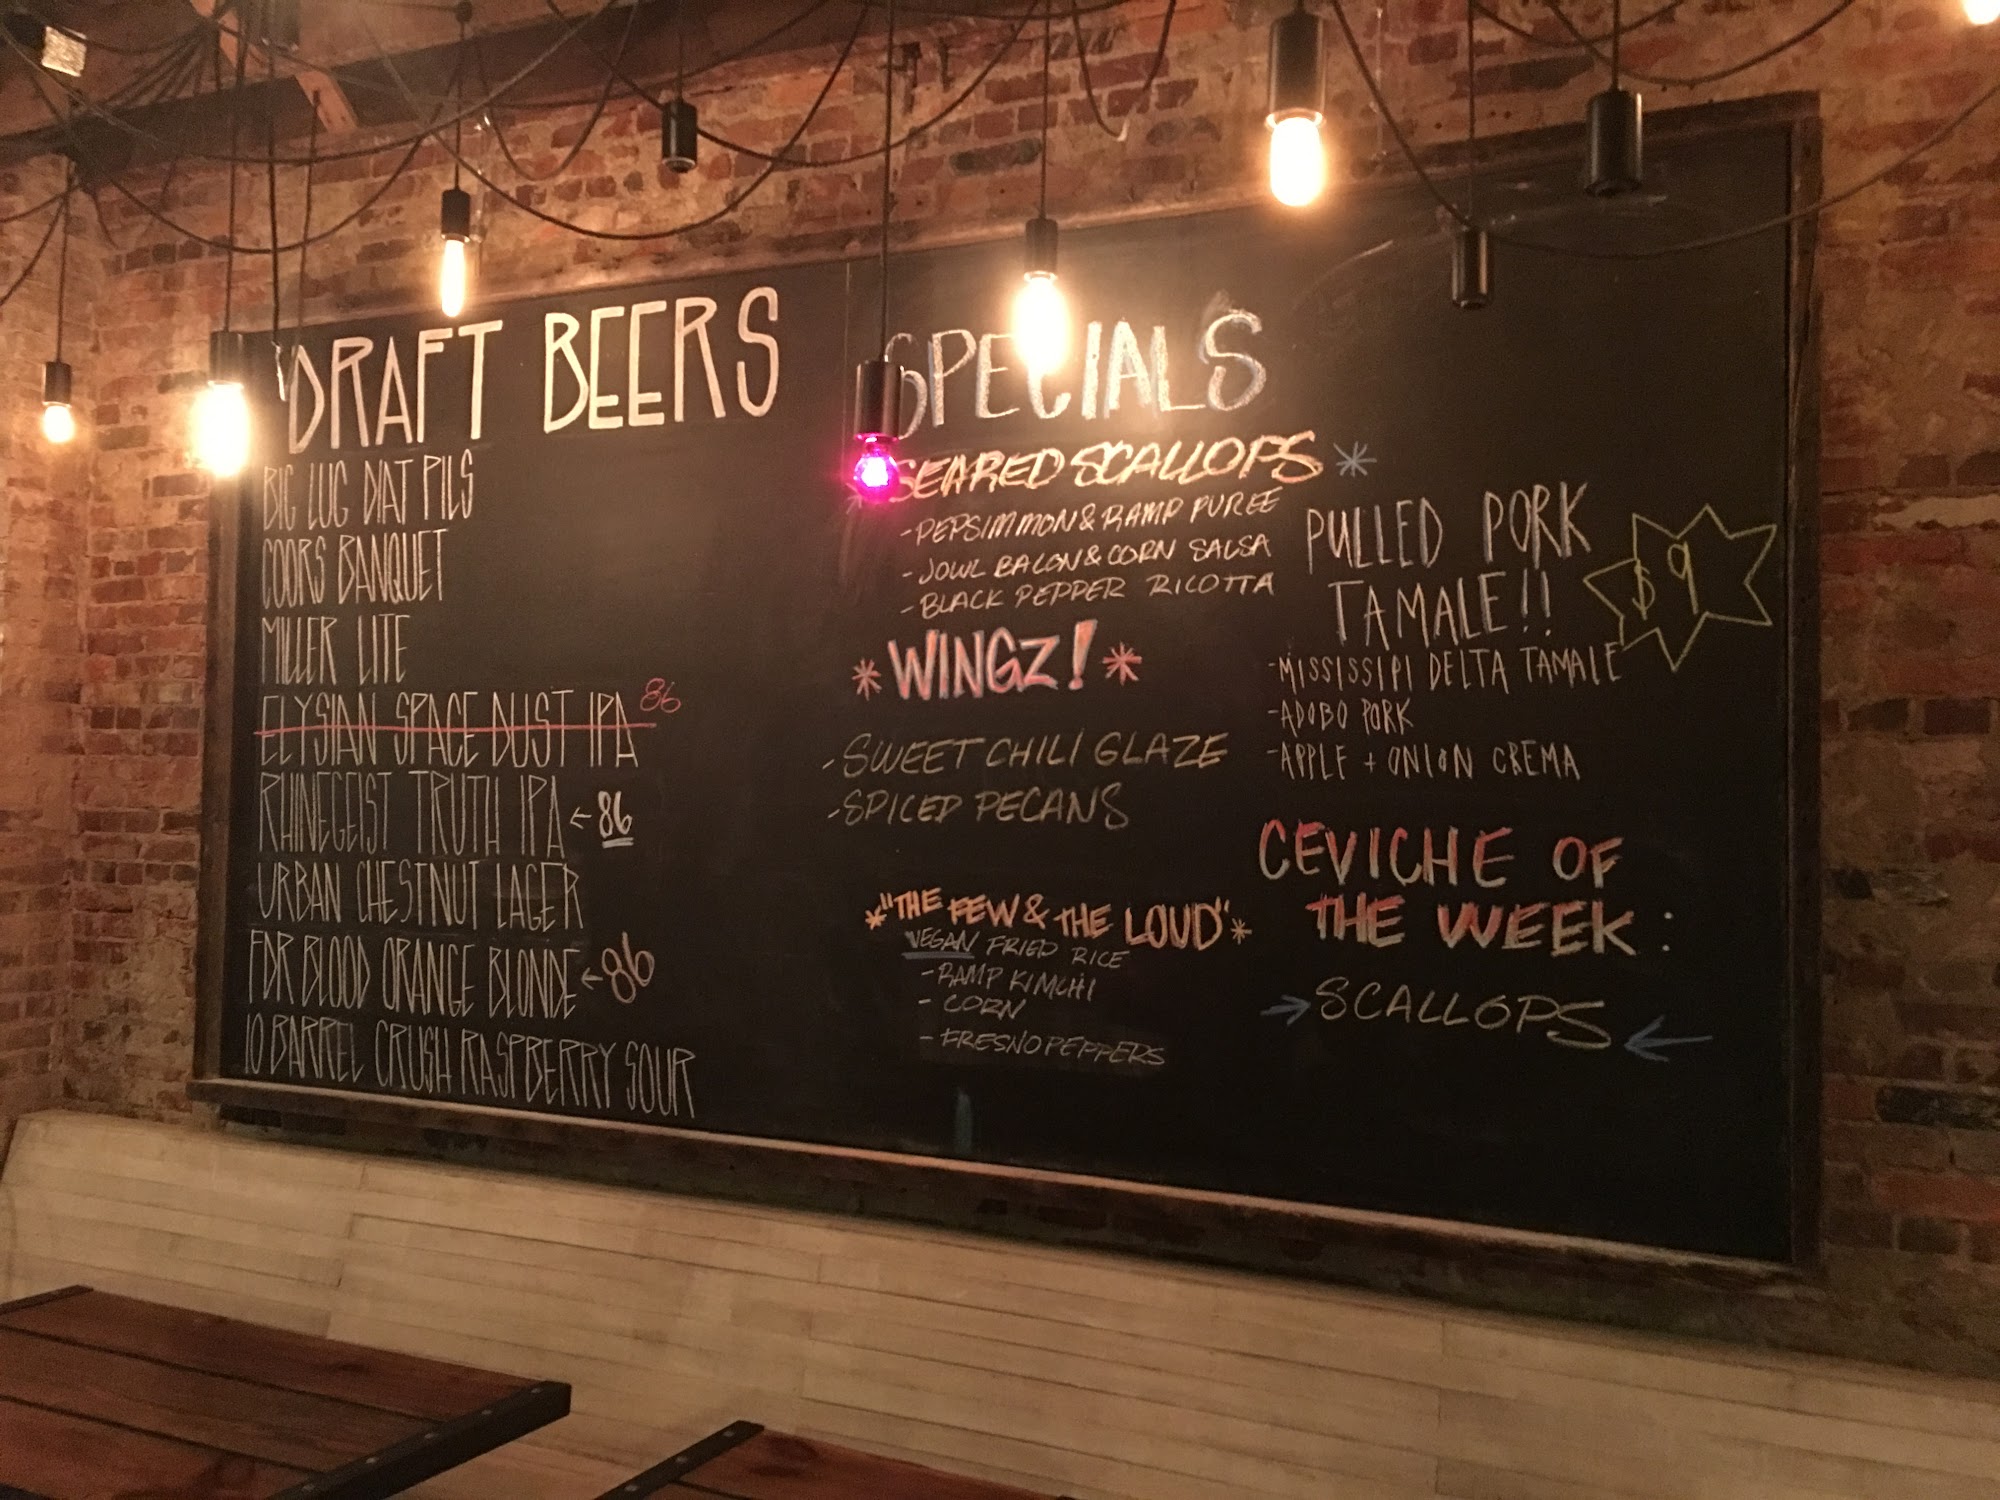 DRAFT BEERS
BIG LUG DIAT PILS
COORS BANQUET
MILLER LITE
ELYSIAN SPACE DUST IPA 86
RHINEGEIST TRUTH IPA ← 86
URBAN CHESTNUT LAGER
FDR BLOOD ORANGE BLONDE ← 86
10 BARREL CRUSH RASPBERRY SOUR
SPECIALS
* SEARED SCALLOPS *
- PEPSIMMON & RAMP PUREE
- JOWL BACON & CORN SALSA
- BLACK PEPPER RICOTTA
* WINGZ! *
- SWEET CHILI GLAZE
- SPICED PECANS
* "THE FEW & THE LOUD" *
VEGAN FRIED RICE
- RAMP KIMCHI
- CORN
- FRESNO PEPPERS
PULLED PORK
TAMALE!!
$9
- MISSISSIPI DELTA TAMALE
- ADOBO PORK
- APPLE + ONION CREMA
CEVICHE OF
THE WEEK:
→ SCALLOPS ←